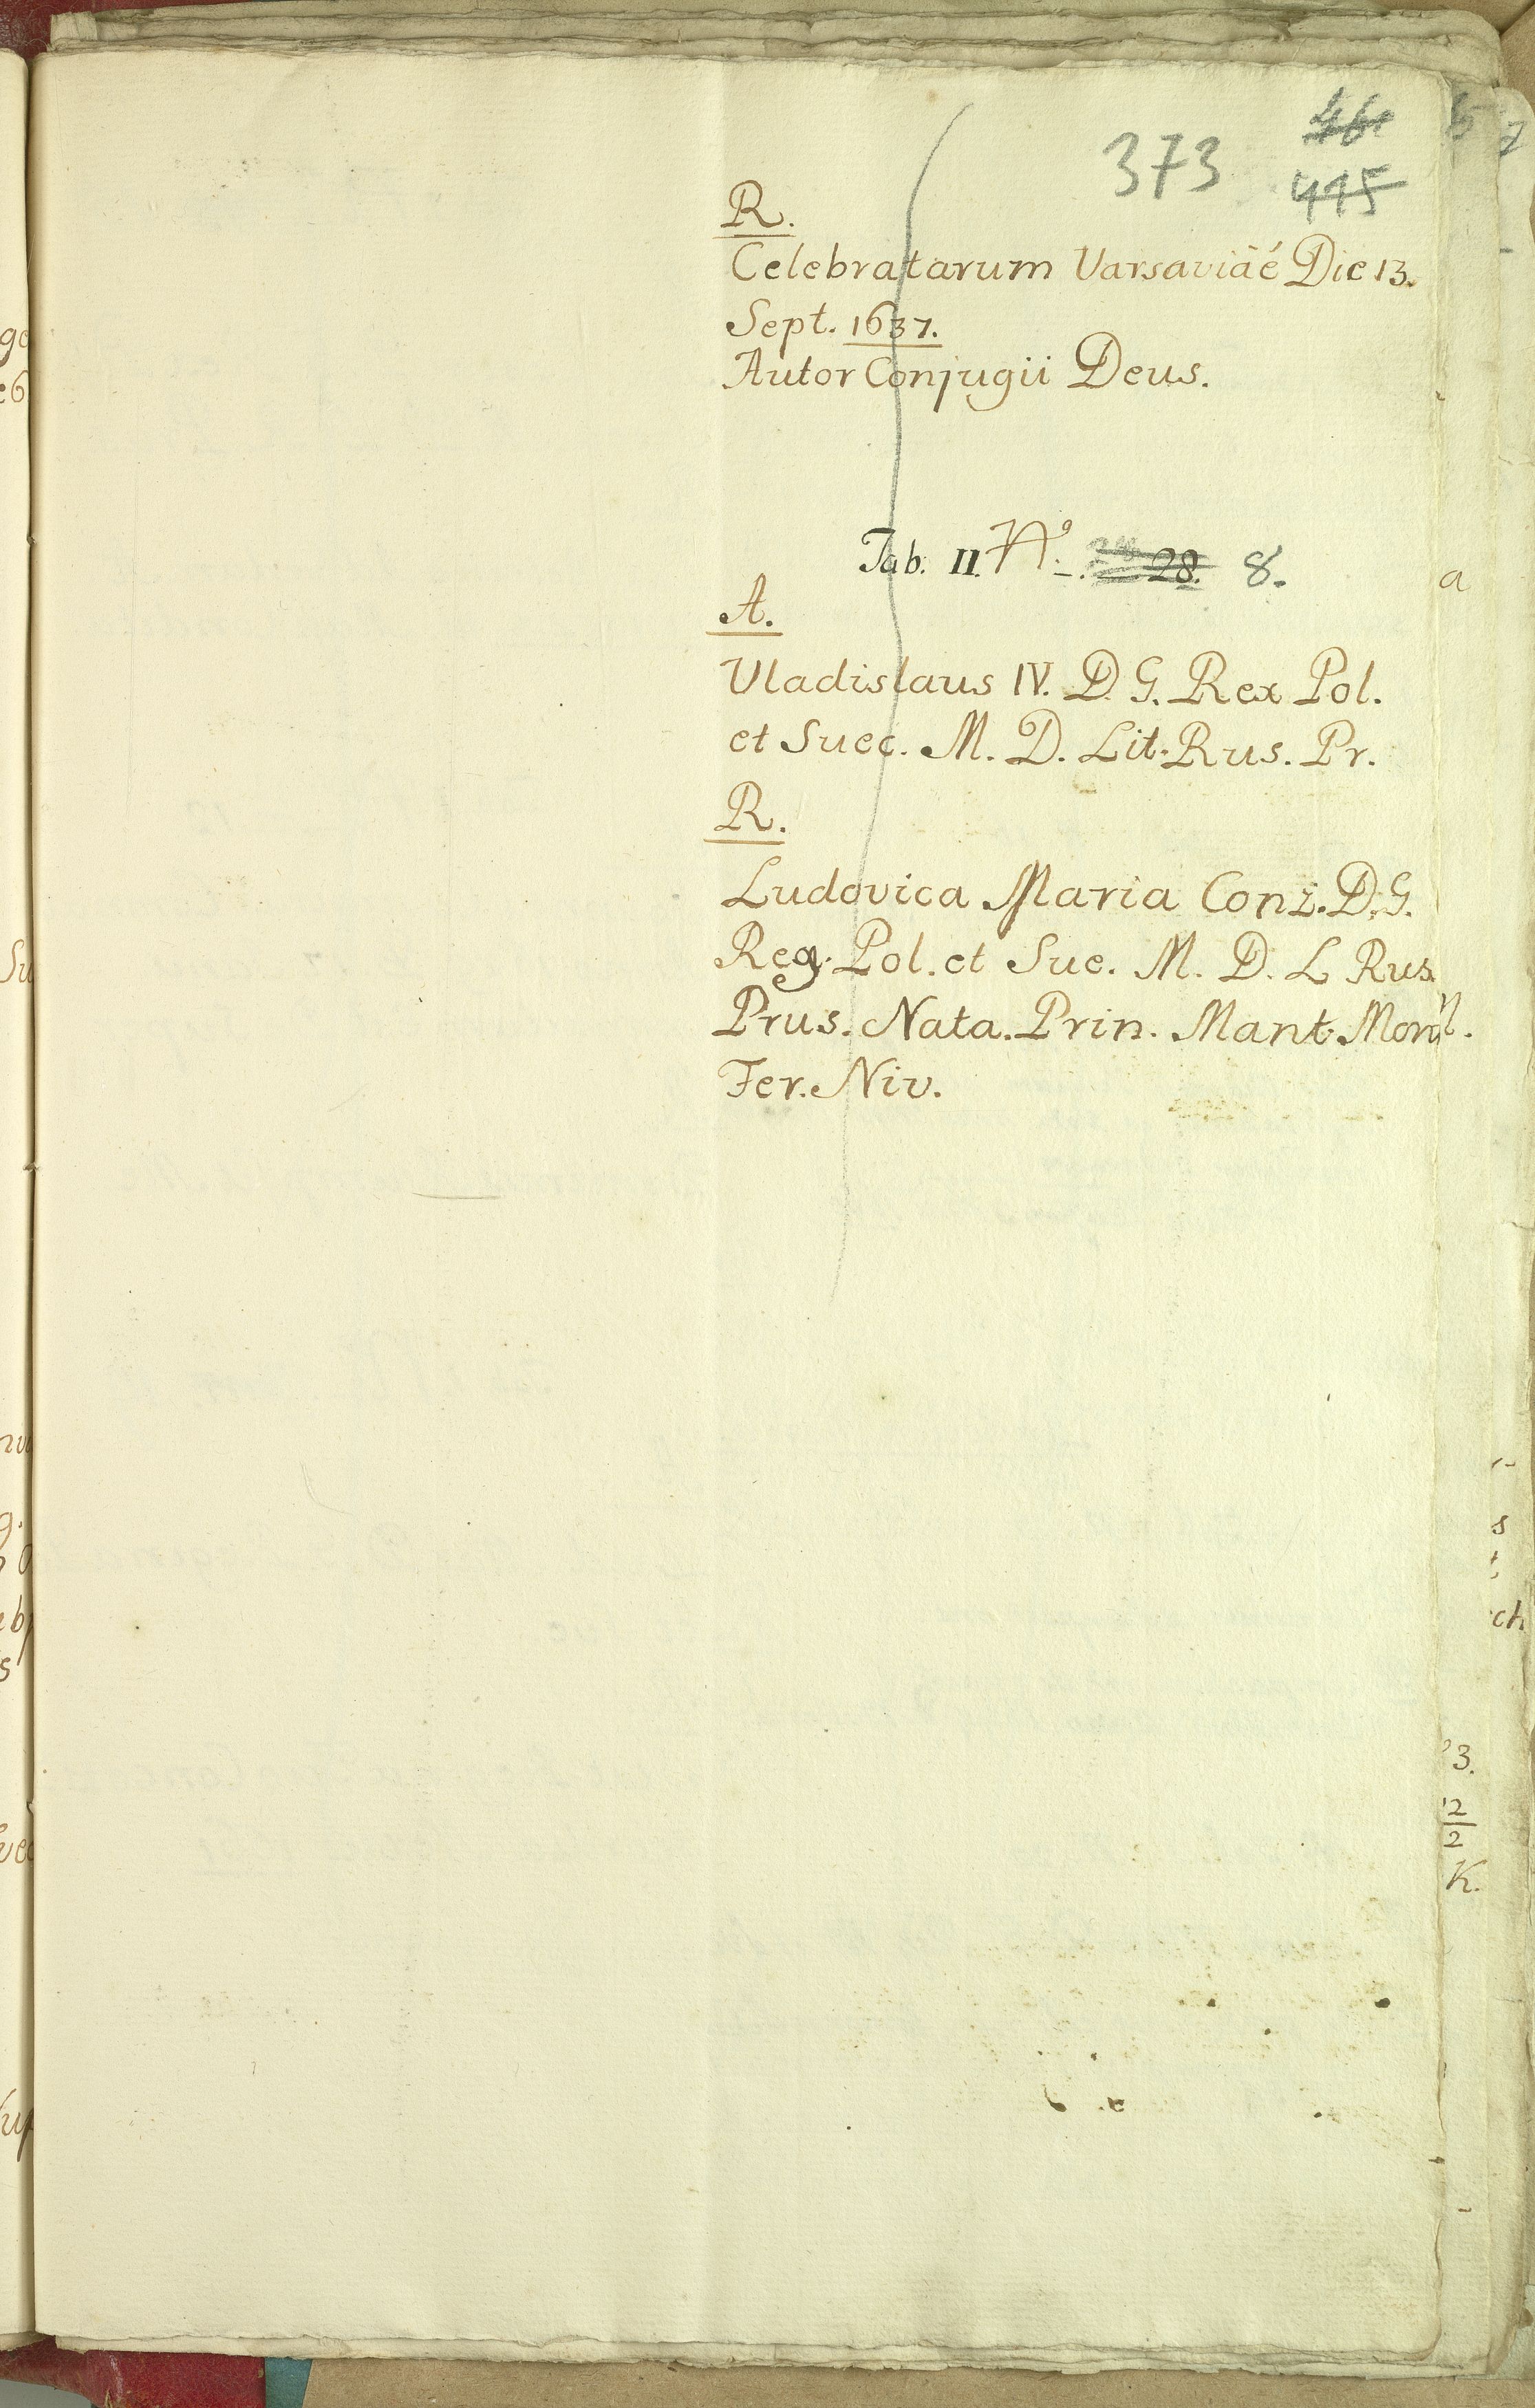 373
445
R.
Celebratarum Varsaviaé Die 13.
Sept. 1637.
Autor Conjugii Deus.
Tab. II. Nº. 28. 8.
A.
Vladislaus IV. D. G. Rex Pol.
et Suec. M. D. Lit. Rus. Pr.
R.
Ludovica Maria Conz. D. G.
Reg. Pol. et Sue. M. D. L Rus.
Prus. Nata. Prin. Mant.
Fer. Niv.